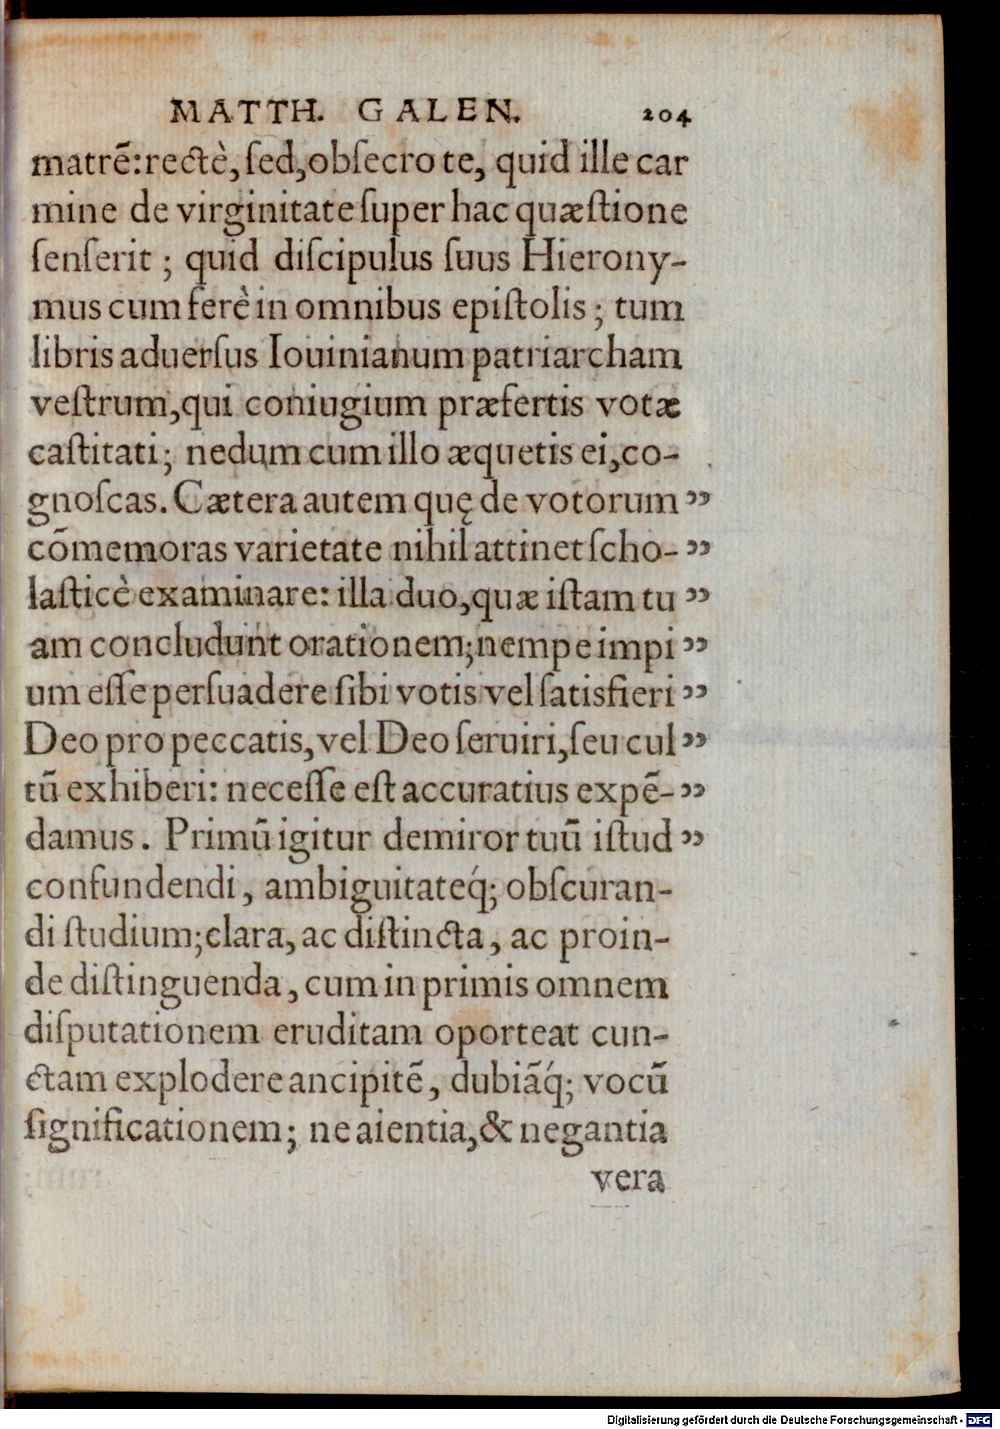 MATTH. GALEN. 204
matrē: rectè, ſed, obſecro te, quid ille car
mine de virginitate ſuper hac quæſtione
ſenſerit; quid diſcipulus ſuus Hierony-
mus cum ferè in omnibus epiſtolis; tum
libris aduerſus Iouinianum patriarcham
veſtrum, qui coniugium præfertis votæ
caſtitati; nedum cum illo æquetis ei, co-
gnoſcas. Cætera autem quę de votorum ”
cōmemoras varietate nihil attinet ſcho- ”
laſticè examinare: illa duo, quæ iſtam tu ”
am concludunt orationem; nempe impi ”
um eſſe perſuadere ſibi votis vel ſatisfieri ”
Deo pro peccatis, vel Deo ſeruiri, ſeu cul ”
tū exhiberi: neceſſe eſt accuratius expē- ”
damus. Primū igitur demiror tuū iſtud ”
confundendi, ambiguitateq́; obſcuran-
di ſtudium; clara, ac diſtincta, ac proin-
de diſtinguenda, cum in primis omnem
diſputationem eruditam oporteat cun-
ctam explodere ancipitē, dubiāq́; vocū
ſignificationem; ne aientia, & negantia
vera
Digitalisierung gefördert durch die Deutsche Forschungsgemeinschaft - DFG